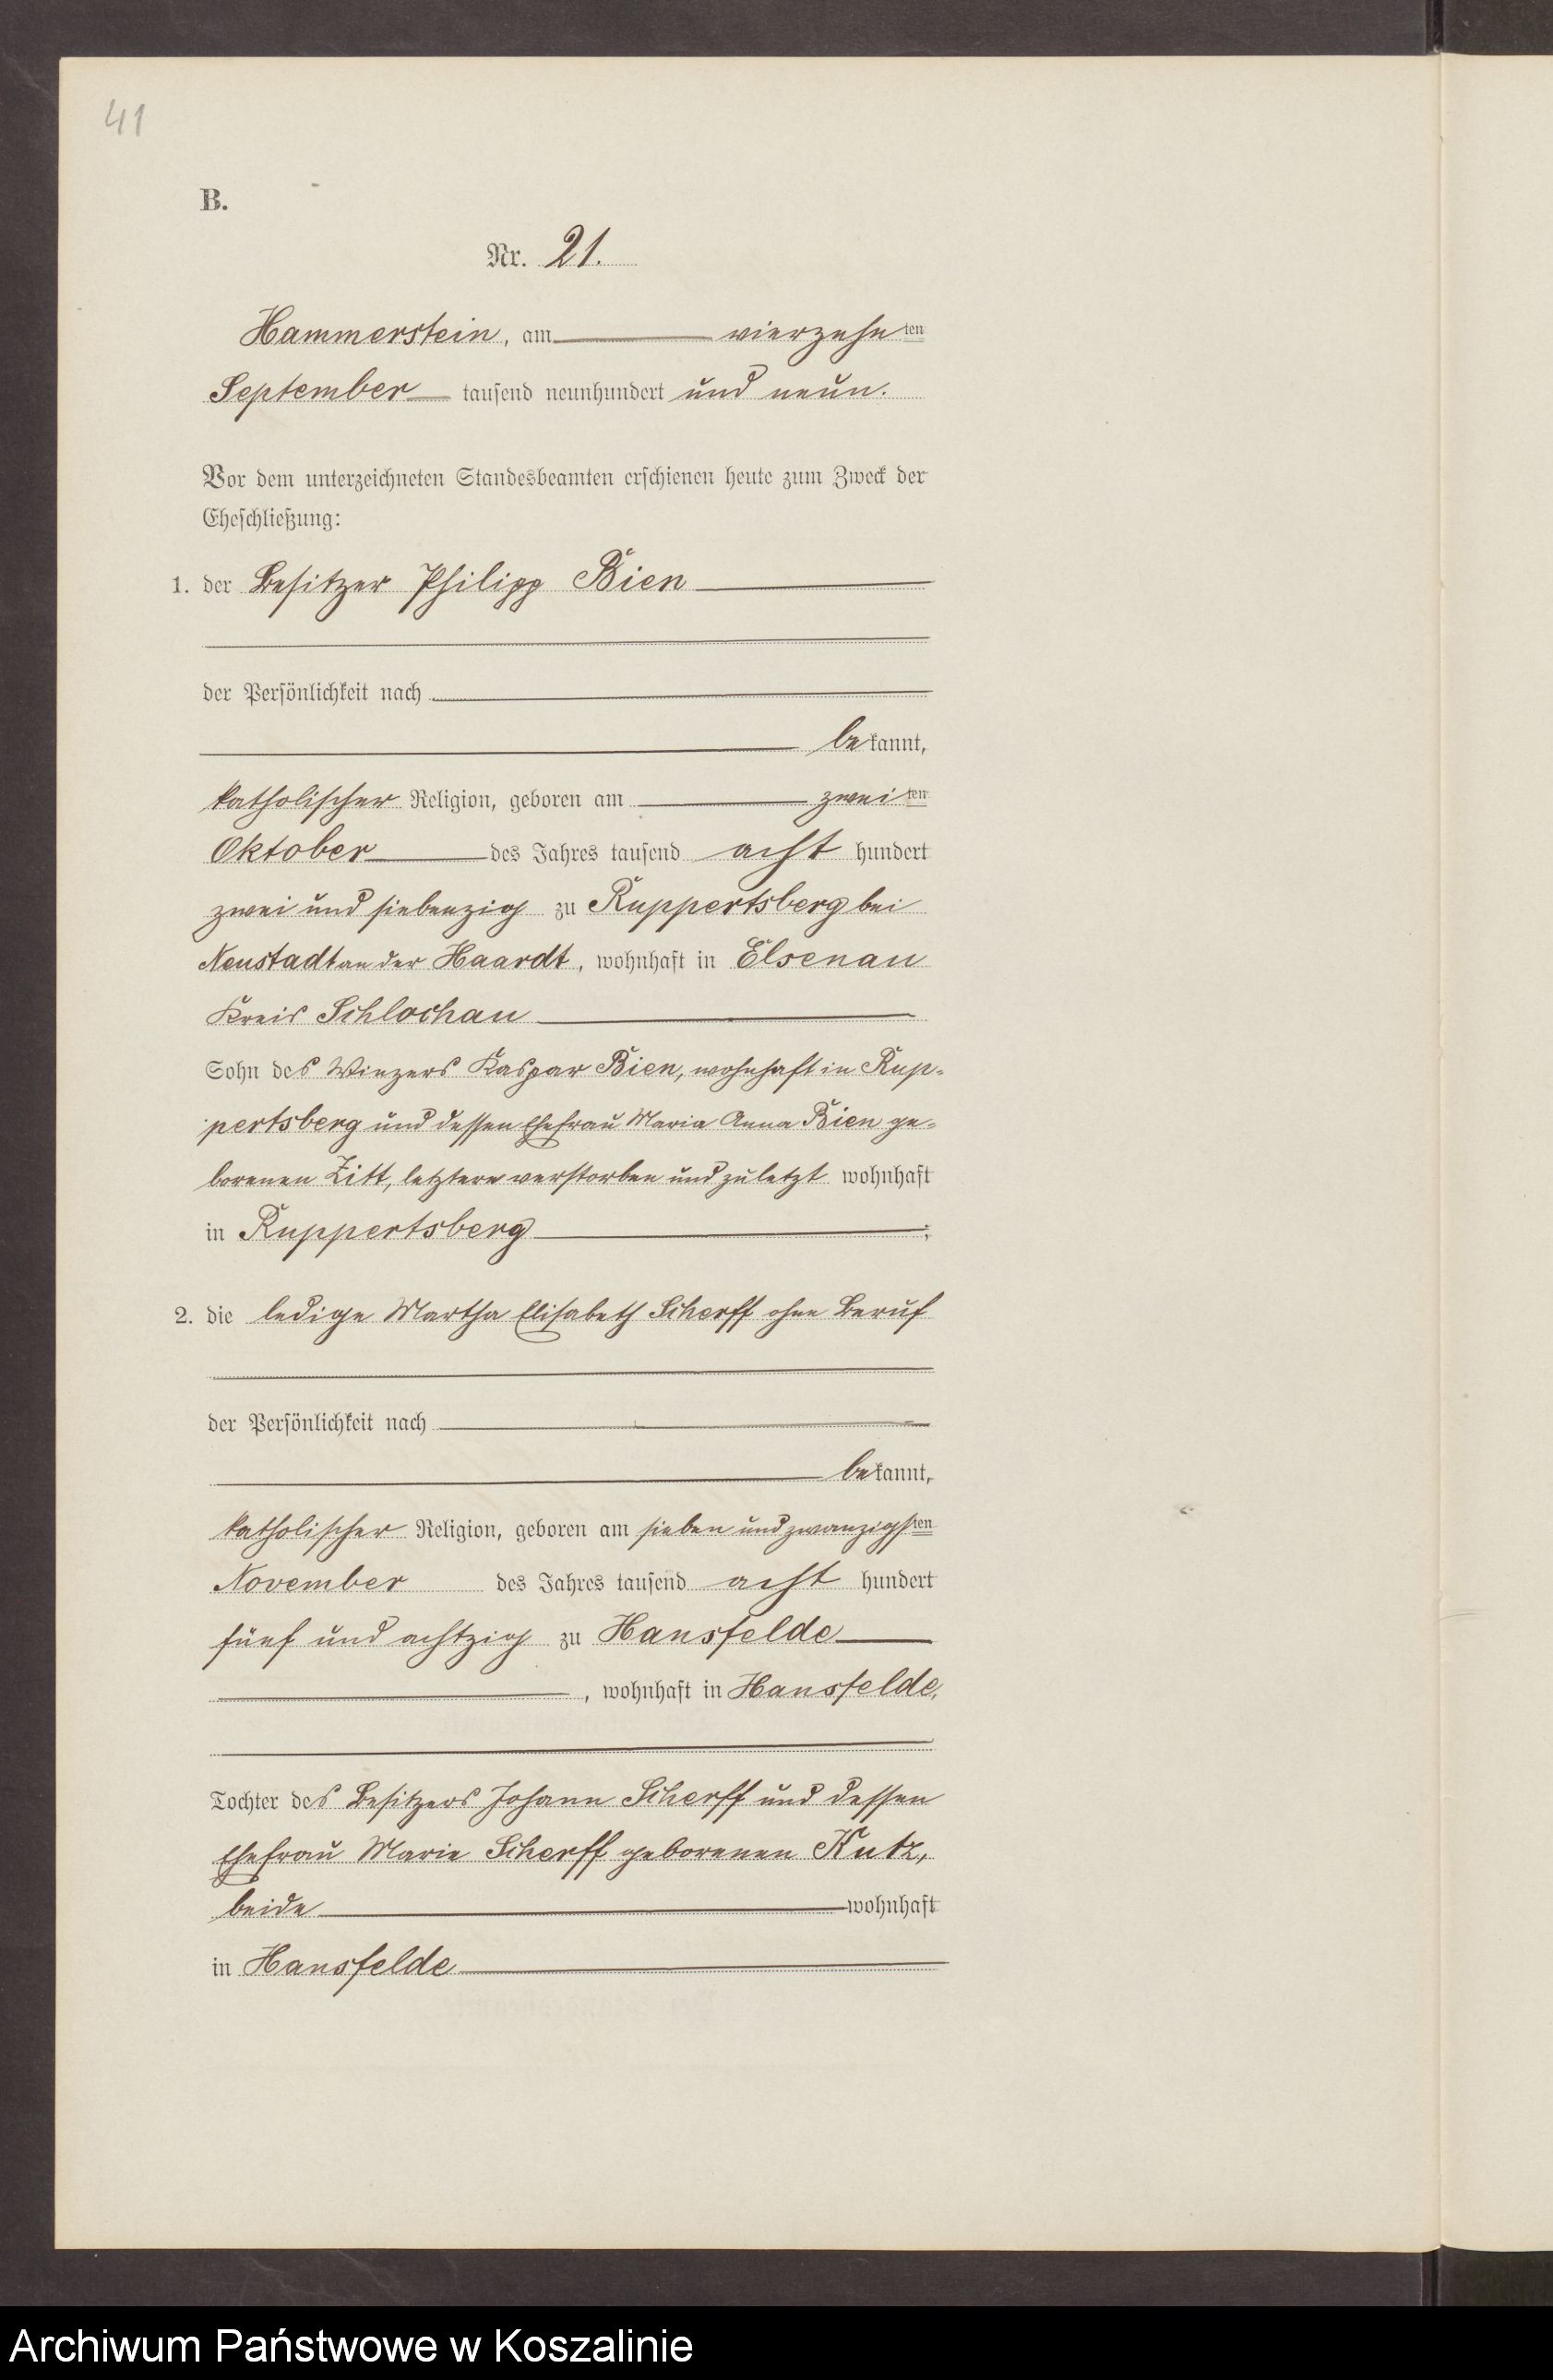 41
B.
Nr. 21.
Hammerstein, am vierzehnten
September tausend neunhundert und neun.
Vor dem unterzeichneten Standesbeamten erschienen heute zum Zweck der
Eheschließung:
1. der Besitzer Philipp Bien
der Persönlichkeit nach
bekannt,
katholischer Religion, geboren am zweiten
Oktober des Jahres tausend acht hundert
zwei und siebenzig zu Ruppertsberg bei
Neustadt an der Haardt, wohnhaft in Elsenau
Kreis Schlochau
Sohn des Winzers Kaspar Bien, wohnhaft in Rup-
pertsberg und dessen Ehefrau Maria Anna Bien ge-
borenen Zitt, letztere verstorben und zuletzt wohnhaft
in Ruppertsberg;
2. die ledige Martha Elisabeth Scherff ohne Beruf
der Persönlichkeit nach
bekannt,
katholischer Religion, geboren am sieben und zwanzigsten
November des Jahres tausend acht hundert
fünf und achtzig zu Hansfelde
, wohnhaft in Hansfelde,
Tochter des Besitzers Johann Scherff und dessen
Ehefrau Marie Scherff geborenen Kutz,
beide wohnhaft
in Hansfelde
Archiwum Państwowe w Koszalinie